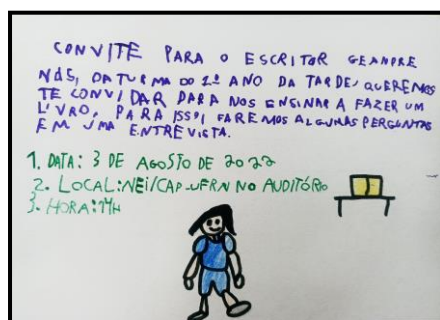 CONVITE PARA O ESCRITOR GEANDRE
NÓS, DA TURMA DO 1º ANO DA TARDE, QUEREMOS
TE CONVIDAR PARA NOS ENSINAR A FAZER UM
LIVRO, PARA ISSO, FAREMOS ALGUMAS PERGUNTAS
EM UMA ENTREVISTA.
1. DATA: 3 DE AGOSTO DE 2022
2. LOCAL: NEI/CAP-UFRN NO AUDITÓRIO
3. HORA: 14H